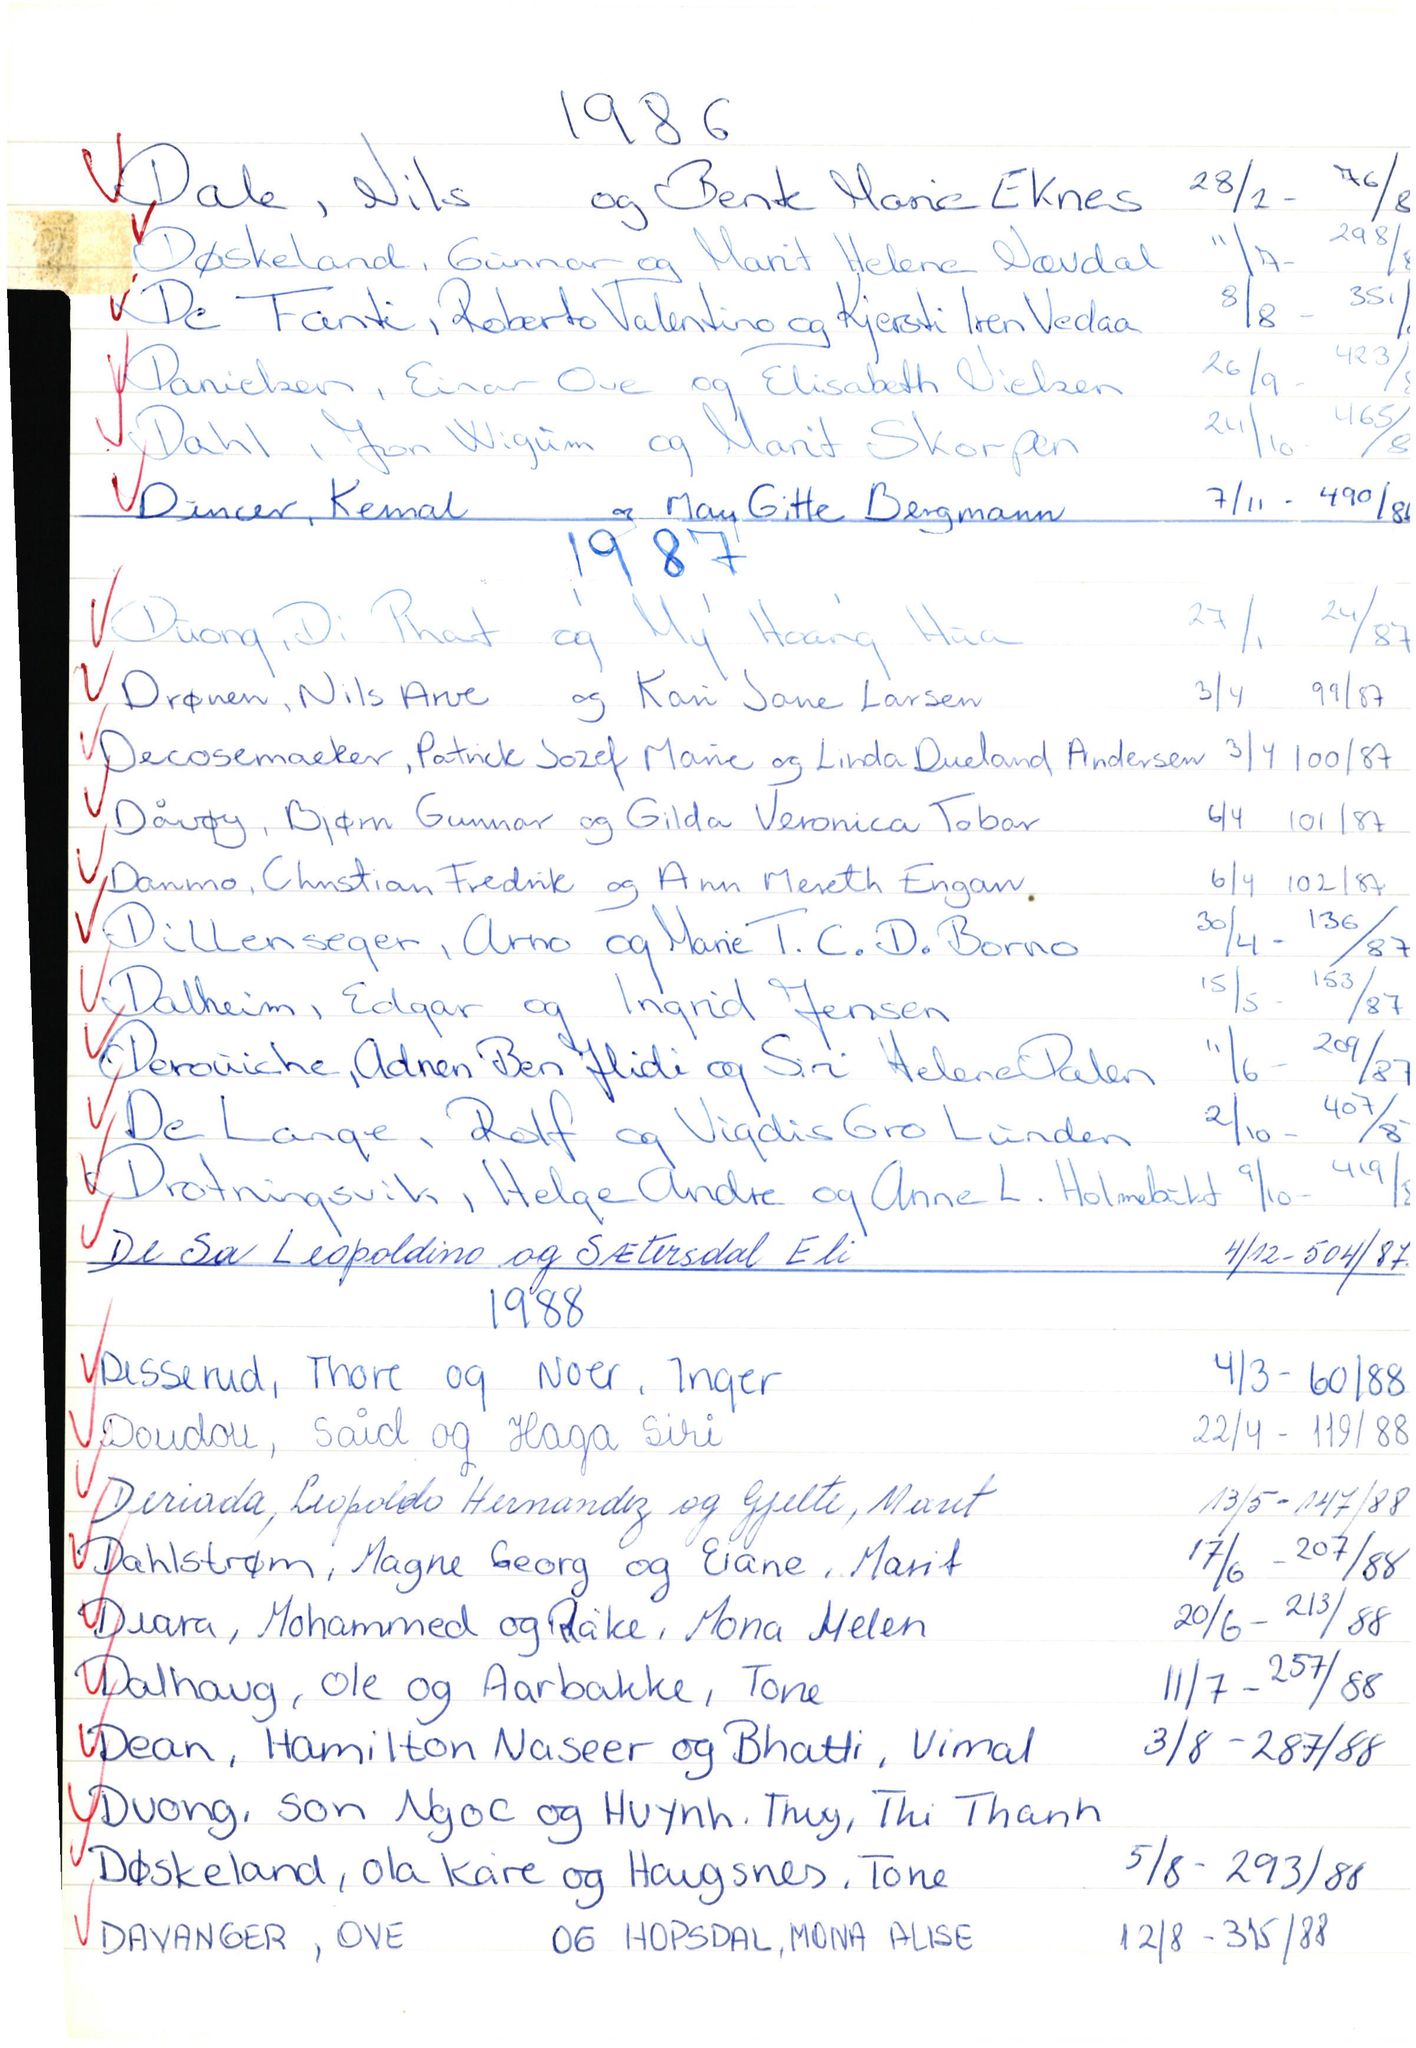 1986
Dale, Nils og Bente Marie Eknes 28/2 - 76/8
Døskeland, Gunnar og Marit Helene Nævdal 11/7 - 298/8
De Fanti, Roberto Valentino og Kjersti Iren Vedaa 8/8 - 351/
Danielsen, Einar Ove og Elisabeth Nielsen 26/9 - 423/8
Dahl, Jon Wigum og Marit Skorpen 24/10 - 465/8
Dincer, Kemal og May Gitte Bergmann 7/11 - 490/86
1987
Duong, Di Phat og Mý Hoáng Húa 27/1 24/87
Drønen, Nils Arve og Kari Jane Larsen 3/4 99/87
Decosemaeker, Patrick Jozef Marie og Linda Dueland Andersen 3/4 100/87
Dåvøy, Bjørn Gunnar og Gilda Veronica Tobar 6/4 101/87
Danmo, Christian Fredrik og Ann Mereth Engan 6/4 102/87
Dillenseger, Arno og Marie T. C. D. Borno 30/4 - 136/87
Dalheim, Edgar og Ingrid Jensen 15/5 - 153/87
Derouiche, Adnen Ben Hidi og Siri Helene Dalen 11/6 - 209/87
De Lange, Rolf og Vigdis Gro Lunden 2/10 - 407/8
Drotningsvik, Helge Andre og Anne L. 9/10 - 419/8
De Sa Leopoldino og Sætersdal Eli 4/12 - 504/87
1988
Disserud, Thore og Noer, Inger 4/3 - 60/88
Doudou, Såid og Haga Siri 22/4 - 119/88
Deriada, Leopoldo Hernandez og Gjelte, Marit 13/5 - 147/88
Dahlstrøm, Magne Georg og Eiane, Marit 17/6 - 207/88
Diara, Mohammed og Råke, Mona Helen 20/6 - 213/88
Dalhaug, Ole og Aarbakke, Tone 11/7 - 257/88
Dean, Hamilton Naseer og Bhatti, Vimal 3/8 - 287/88
Duong, Son Ngoc og Huynh. Thuy, Thi Thanh
Døskeland, Ola Kåre og Haugsnes, Tone 5/8 - 293/88
DAVANGER, OVE OG HOPSDAL, MONA ALISE 12/8 - 315/88